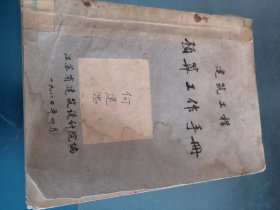 建筑工程
预算工作手册
何建忠
江苏省建筑设计院编
一九八〇年四月